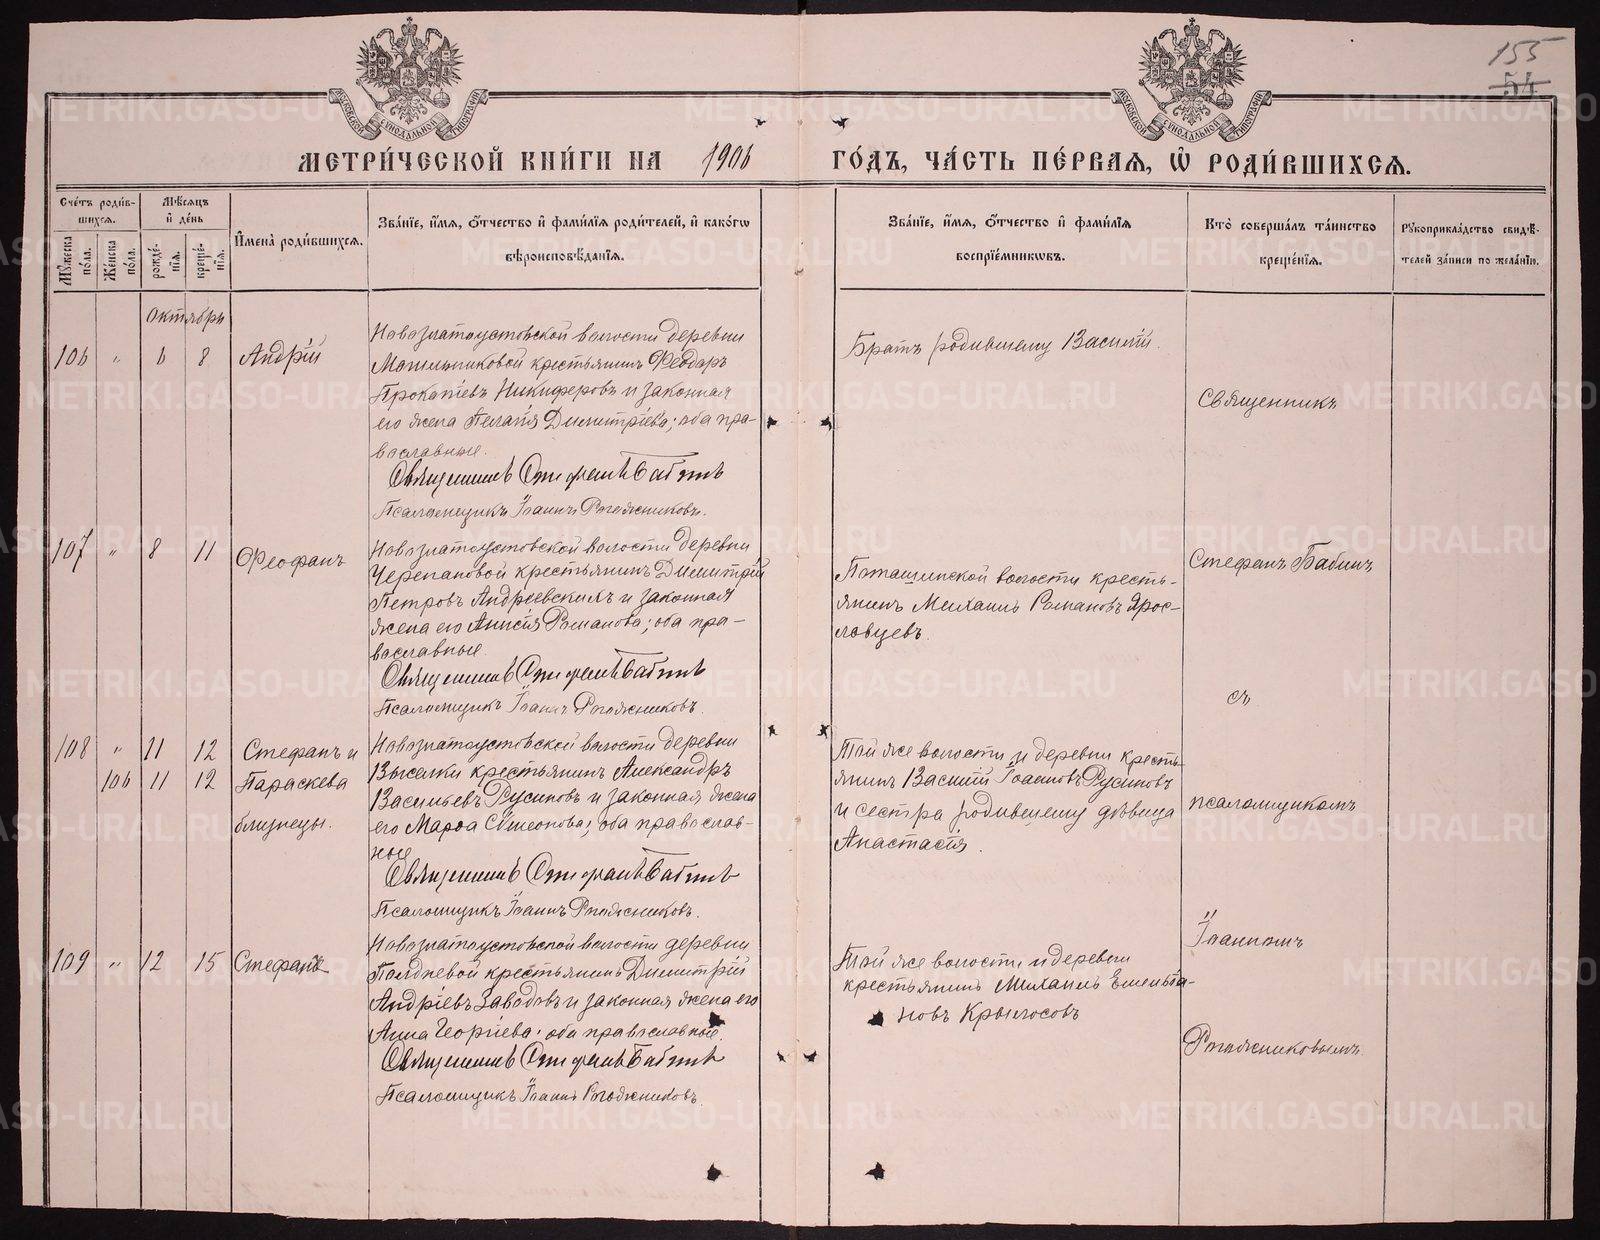 155
54
МОСКОВСКОЙ СѴНОДАЛЬНОЙ ТИПОГРАФІИ
МОСКОВСКОЙ СѴНОДАЛЬНОЙ ТИПОГРАФІИ
МЕТРИ́ЧЕСКОЙ КНИ́ГИ НА 1906 ГО́ДЪ, ЧА́СТЬ ПЕ́РВАЯ, Ѽ РОДИ́ВШИХСЯ.
Сче́тъ роди́в-
шихся.
Мꙋ́жеска по́ла.
Же́нска по́ла.
Мѣ́сяцъ и҆ де́нь
рожде́-
нїя.
креще́-
нїя.
И҆мена̀ роди́вшихся.
Зва́нїе, и҆́мя, ѻ҆́тчество и҆ фами́лїя роди́телей, и҆ како́гѡ
вѣроисповѣ́данїя.
Зва́нїе, и҆́мя, ѻ҆́тчество и҆ фами́лїя
воспрїе́мникѡвъ.
Кто̀ соверша́лъ та́инство
креще́нїя.
Рꙋкоприкла́дство свидѣ́-
телей за́писи по жела́нїю.
Октябрь
106 " 6 8 Андрій
Новозлатоустовской волости деревни
Мотыльниковой крестьянинъ Ѳеодоръ
Прокопіевъ Никифоровъ и законная
его жена Пелагія Димитріева; оба пра-
вославные.
Священникъ Стефанъ Бабинъ
Псаломщикъ Іоаннъ Рогожниковъ.
Братъ родившему Василій.
Священникъ
107 " 8 11 Ѳеофанъ
Новозлатоустовской волости деревни
Черепановой крестьянинъ Димитрій
Петровъ Андреевскихъ и законная
жена его Анисія Романова; оба пра-
вославные.
Священникъ Стефанъ Бабинъ
Псаломщикъ Іоаннъ Рогожниковъ.
Поташинской волости кресть-
янинъ Михаилъ Романовъ Ярос-
лавцевъ.
Стефанъ Бабинъ
съ
108 " 11 12 Стефанъ и
106 11 12 Параскева
близнецы.
Новозлатоустовской волости деревни
Выселки крестьянинъ Александръ
Васильевъ Русиновъ и законная жена
его Марѳа Симеонова; оба православ-
ные
Священникъ Стефанъ Бабинъ
Псаломщикъ Іоаннъ Рогожниковъ.
Той же волости и деревни кресть-
янинъ Василій Іоанновъ Русиновъ
и сестра родившему дѣвица
Анастасія.
псаломщикомъ
Іоанномъ
109 " 12 15 Стефанъ
Новозлатоустовской волости деревни
Полдневой крестьянинъ Димитрій
Андріевъ Заводовъ и законная жена его
Анна Георгіева; оба православные.
Священникъ Стефанъ Бабинъ
Псаломщикъ Іоаннъ Рогожниковъ.
Той же волости и деревни
крестьянинъ Михаилъ Емельѣа-
новъ Крылосовъ
Рогожниковымъ.
METRIKI.GASO-URAL.RU